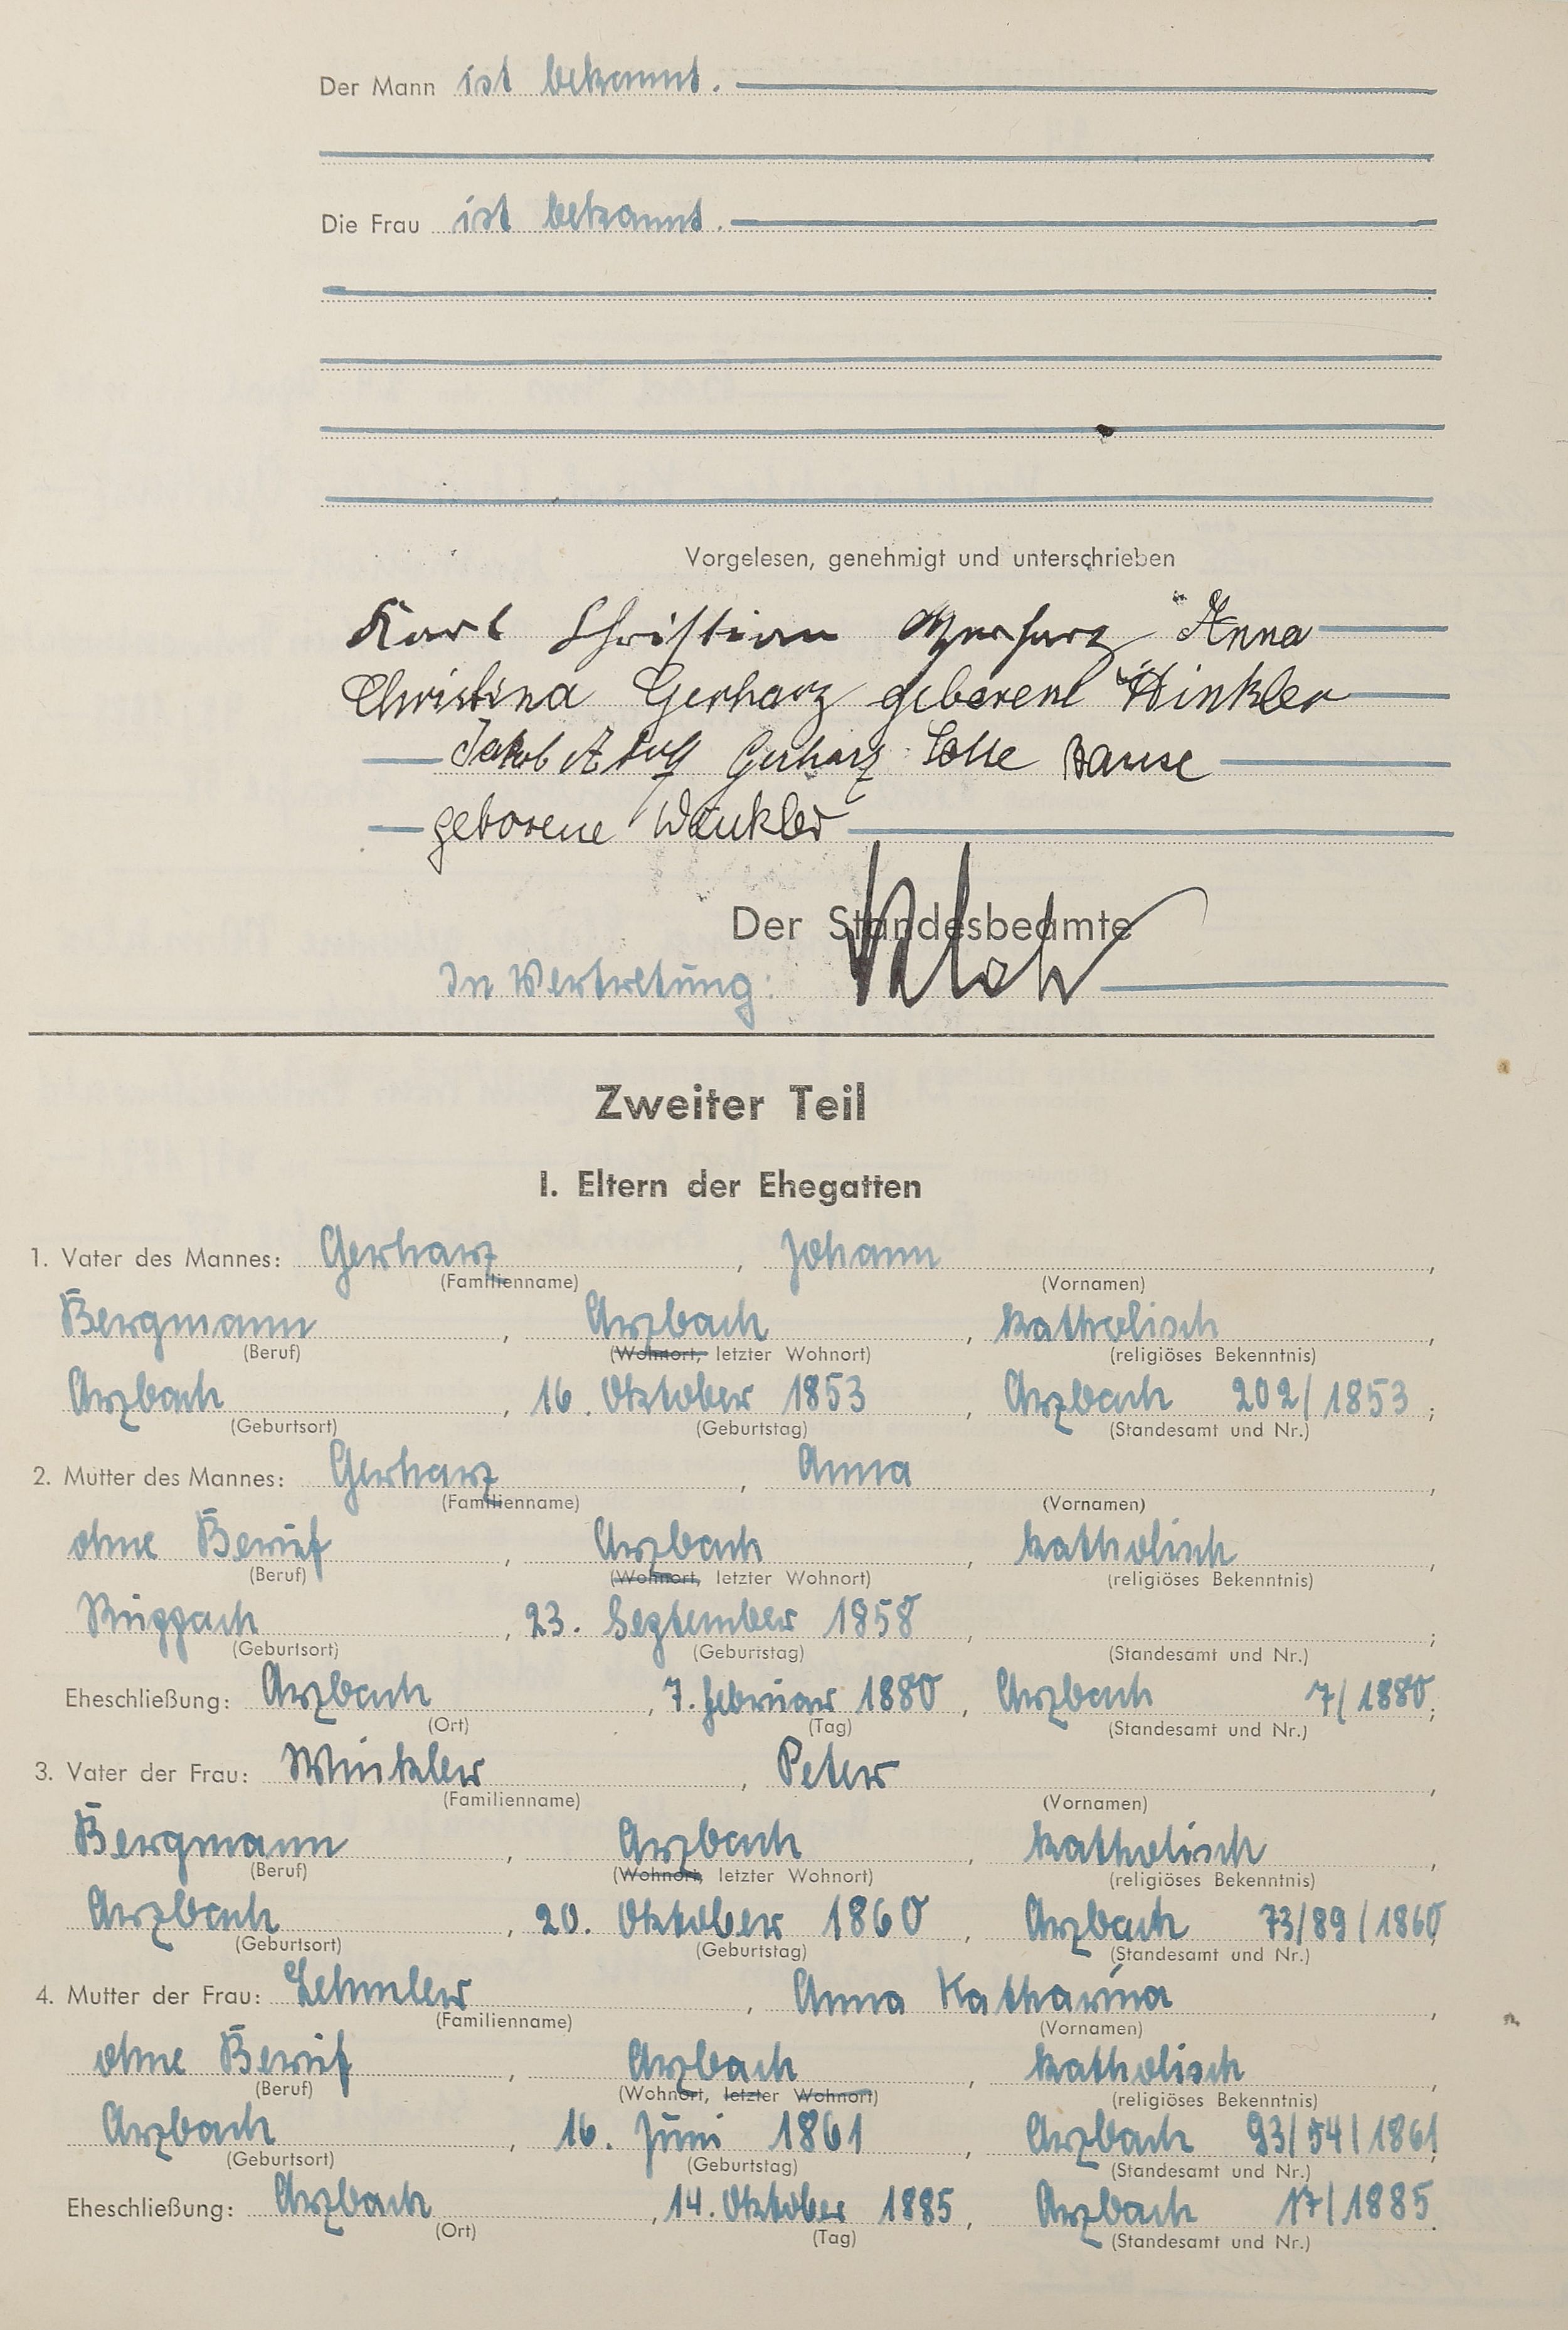 Der Mann ist bekannt.
Die Frau ist bekannt.
Vorgelesen, genehmigt und unterschrieben
Karl Christian Gerharz Anna
Christina Gerharz geborene Winkler
Jakob Gerharz Bause
geborene Winkler
Der Standesbeamte
In Vertretung:
Zweiter Teil
I. Eltern der Ehegatten
1. Vater des Mannes: Gerharz, Johann,
(Familienname) (Vornamen)
Bergmann, Arzbach, katholisch,
(Beruf) (Wohnort, letzter Wohnort) (religiöses Bekenntnis)
Arzbach, 16. Oktober 1853, Arzbach 202/1853;
(Geburtsort) (Geburtstag) (Standesamt und Nr.)
2. Mutter des Mannes: Gerharz, Anna,
(Familienname) (Vornamen)
ohne Beruf, Arzbach, katholisch,
(Beruf) (Wohnort, letzter Wohnort) (religiöses Bekenntnis)
, 23. September 1858, ;
(Geburtsort) (Geburtstag) (Standesamt und Nr.)
Eheschließung: Arzbach, 7. Februar 1880, Arzbach 7/1880;
(Ort) (Tag) (Standesamt und Nr.)
3. Vater der Frau: Winkler, Peter,
(Familienname) (Vornamen)
Bergmann, Arzbach, katholisch,
(Beruf) (Wohnort, letzter Wohnort) (religiöses Bekenntnis)
Arzbach, 20. Oktober 1860, Arzbach 73/89/1860,
(Geburtsort) (Geburtstag) (Standesamt und Nr.)
4. Mutter der Frau: Lehmler, Anna Katharina,
(Familienname) (Vornamen)
ohne Beruf, Arzbach, katholisch,
(Beruf) (Wohnort, letzter Wohnort) (religiöses Bekenntnis)
Arzbach, 16. Juni 1861, Arzbach 93/54/1861,
(Geburtsort) (Geburtstag) (Standesamt und Nr.)
Eheschließung: Arzbach, 14. Oktober 1885, Arzbach 17/1885.
(Ort) (Tag) (Standesamt und Nr.)